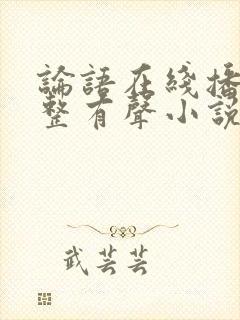 論語在綫播
整有聲小説
武芸芸